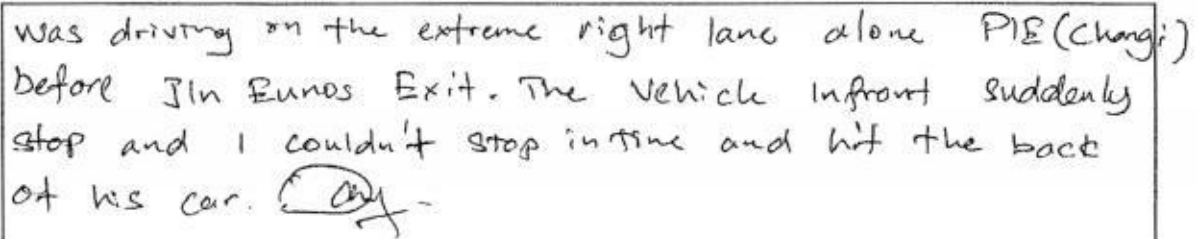 was driving on the extreme right lane alone PIE (Changi)
before Jln Eunos Exit. The vehicle infront suddenly
stop and I couldn't stop in time and hit the back
of his car.